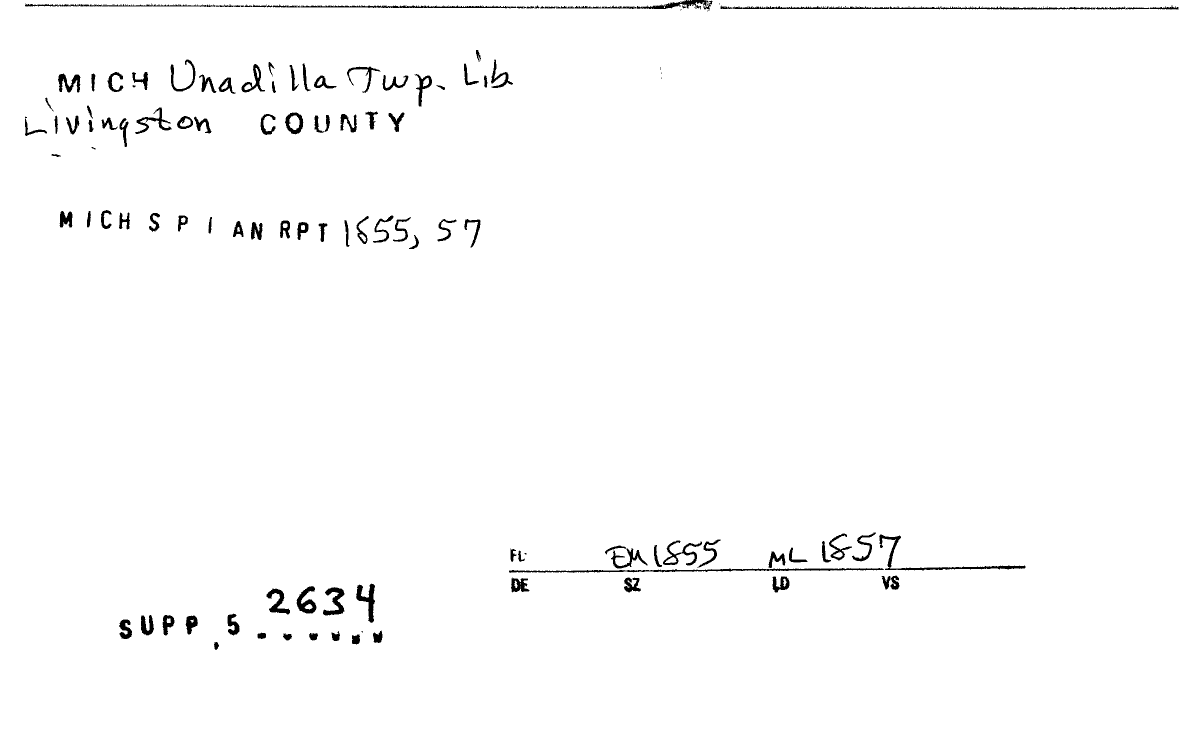 MICH Unadilla Twp. Lib
Livingston COUNTY
MICH S P I AN RPT 1855, 57
FL EM 1855 ML 1857
DE SZ LD VS
2634
SUPP.5 ......